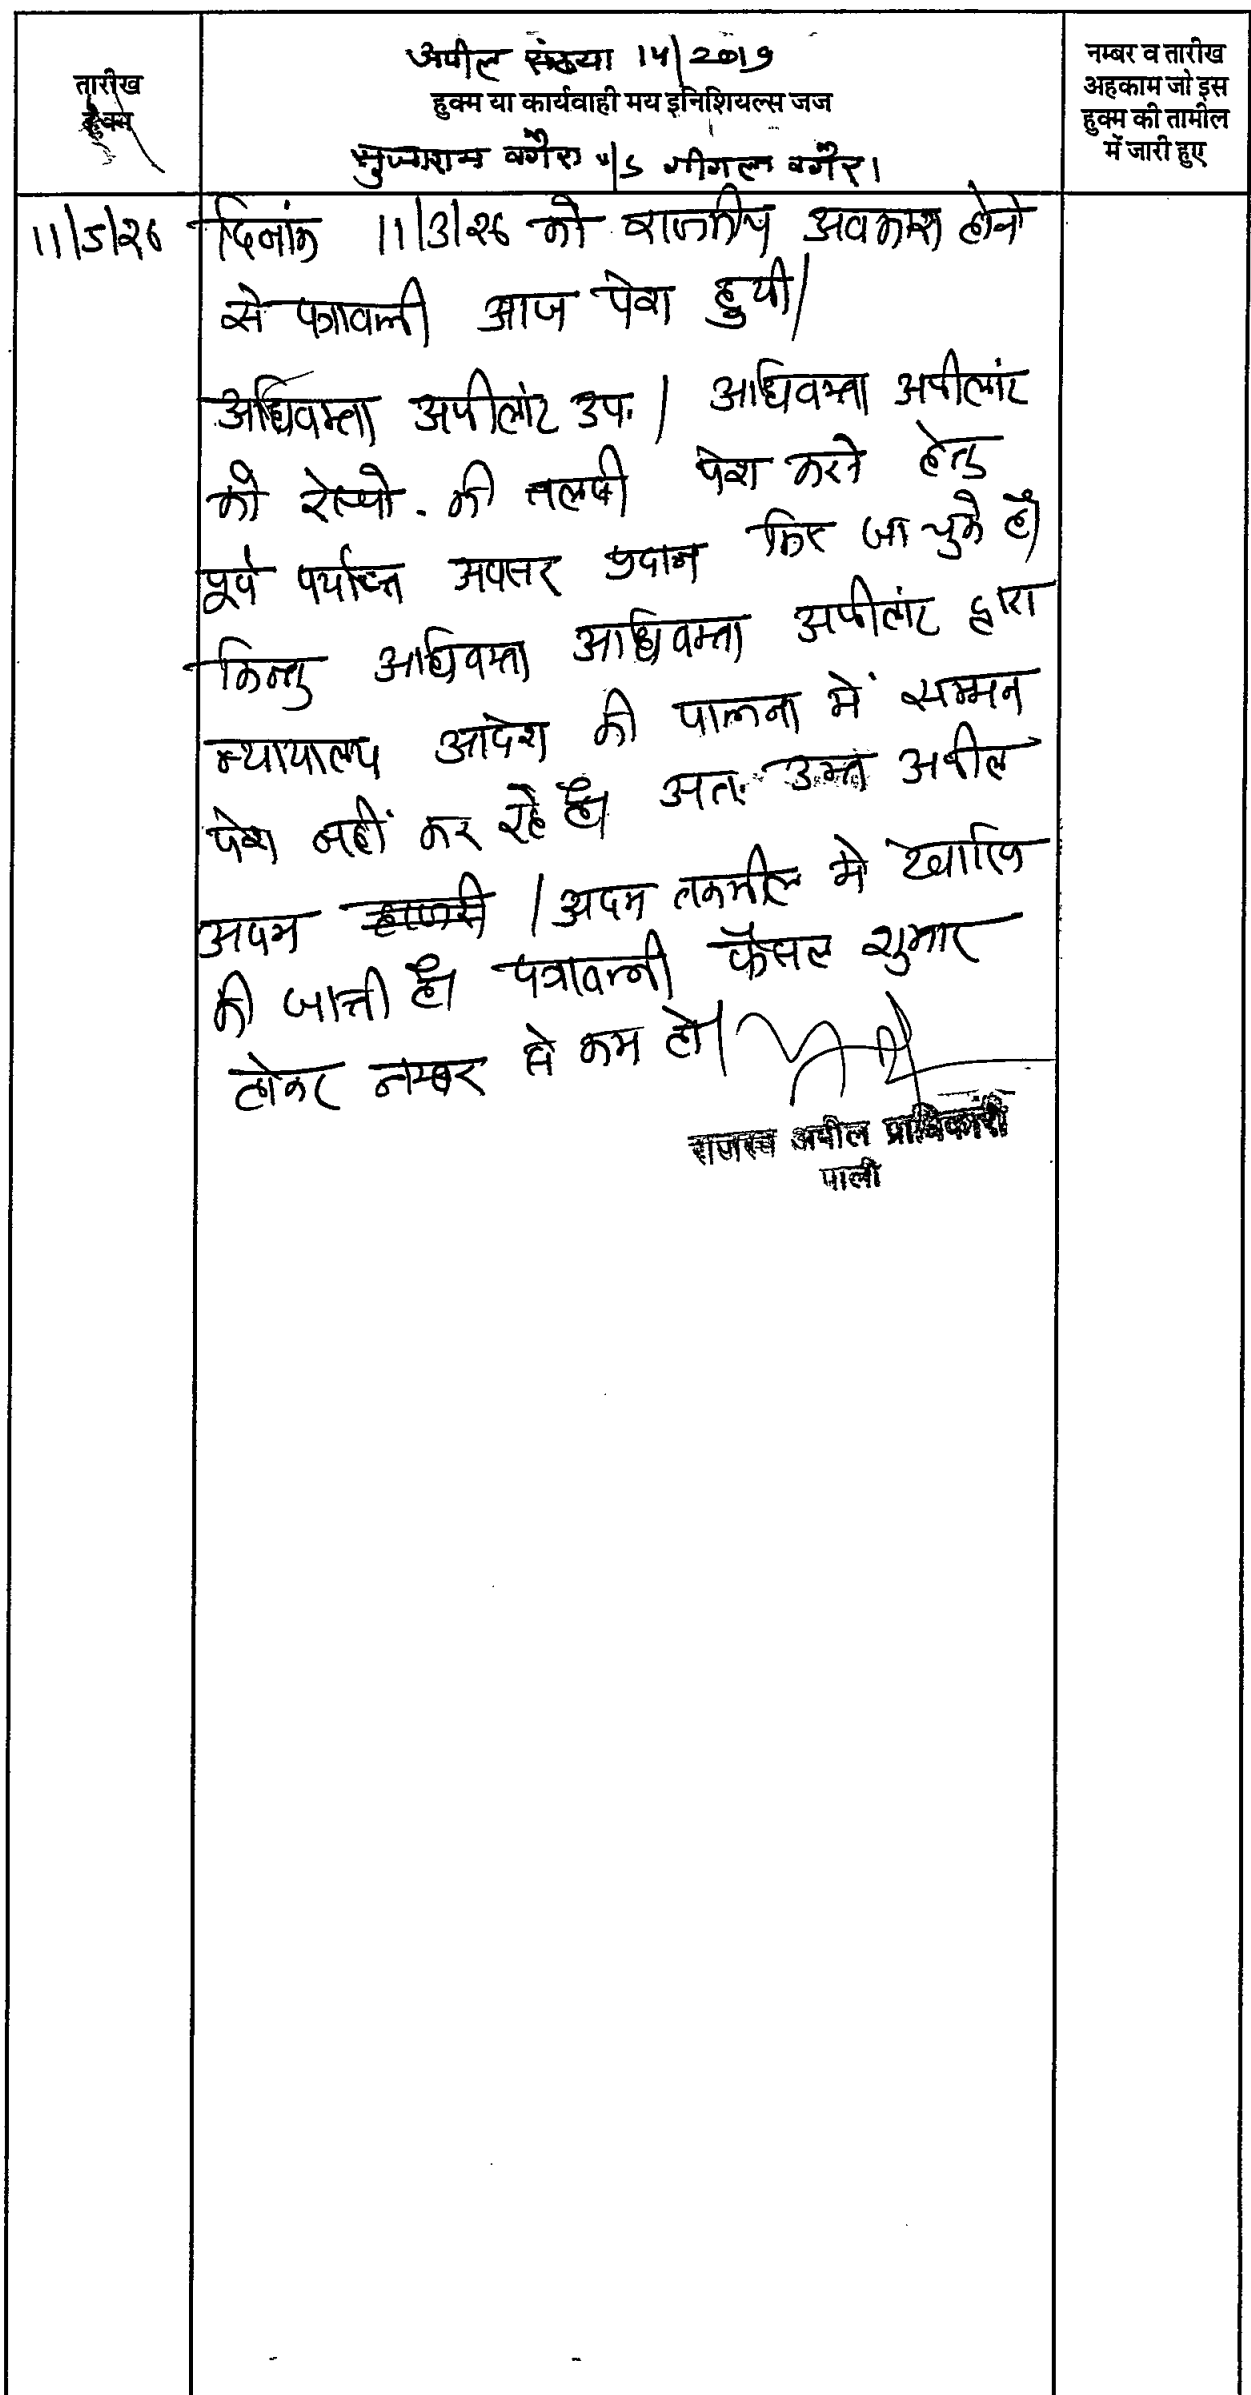 अपील संख्या 14/2019
तारीख
हुक्म
हुक्म या कार्यवाही मय इनिशियल्स जज
वगैरा v/s वगैरा
नम्बर व तारीख
अहकाम जो इस
हुक्म की तामील
में जारी हुए
11/5/26 दिनांक 11/3/26 को राजकीय अवकाश होने
से पत्रावली आज पेश हुयी।
अधिवक्ता अपीलांट उप. । अधिवक्ता अपीलांट
को रेस्पो. की तलबी पेश करने हेतु
पूर्व पर्याप्त अवसर प्रदान किए जा चुके है।
किन्तु अधिवक्ता अधिवक्ता अपीलांट द्वारा
न्यायालय आदेश की पालना में सम्मन
पेश नहीं कर रहे है। अतः उक्त अपील
अदम हाजरी / अदम तकमील मे खारिज
की जाती है। पत्रावली फैसल शुमार
होकर नम्बर से कम हो।
राजस्व अपील प्राधिकारी
पाली